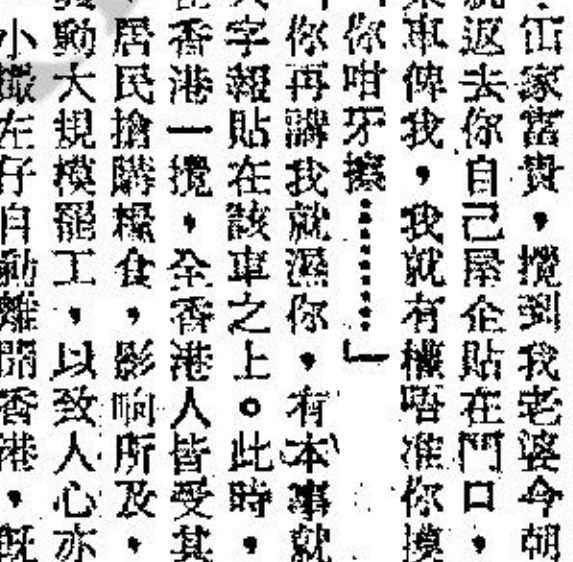 冚家富貴，攪到我老婆今朝
返去你自己屋企貼在門口，
車俾我，我就有權唔准你摸
你咁牙擦………」
你再講我就濕你，有本事就
字報貼在該車之上。此時，
香港一攪，全香港人皆受其
居民搶購糧食，影响所及，
動大規模罷工，以致人心亦
小撮左仔自動離開香港，旣